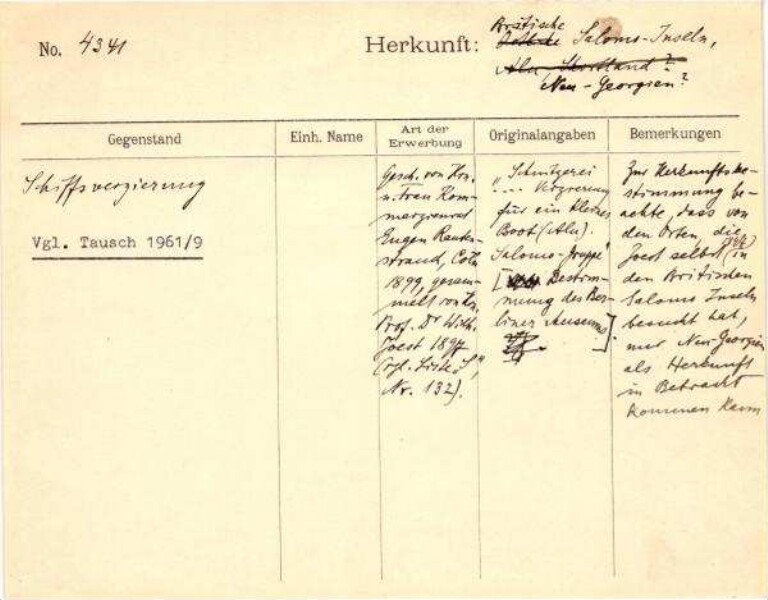 No. 4341
Herkunft:
Britische
Salomo-Inseln,
Alu Shortland?
Neu-Georgien?
Gegenstand
Einh. Name
Art der
Erwerbung
Originalangaben
Bemerkungen
Schiffsverzierung
Vgl. Tausch 1961/9
Gesch. von Hrn.
u. Frau Kom-
merzienrat
Eugen Rauten-
strauch, Cöln
1899, gesam-
melt von Hrn.
Prof. Dr. Wilh.
Joest 1897
(vgl. Liste "S",
Nr. 132).
"Schnitzerei
.... Verzierung
für ein kleines
Boot (Alu).
Salomo-Gruppe"
[Bestim-
mung des Ber-
liner Museums]
Zur Herkunftsbe-
stimmung be-
achte, dass von
den Orten, die
Joest selbst (in
den Britischen
Salomo Inseln
besucht hat,
nur Neu-Georgien
als Herkunft
in Betracht
kommen kann